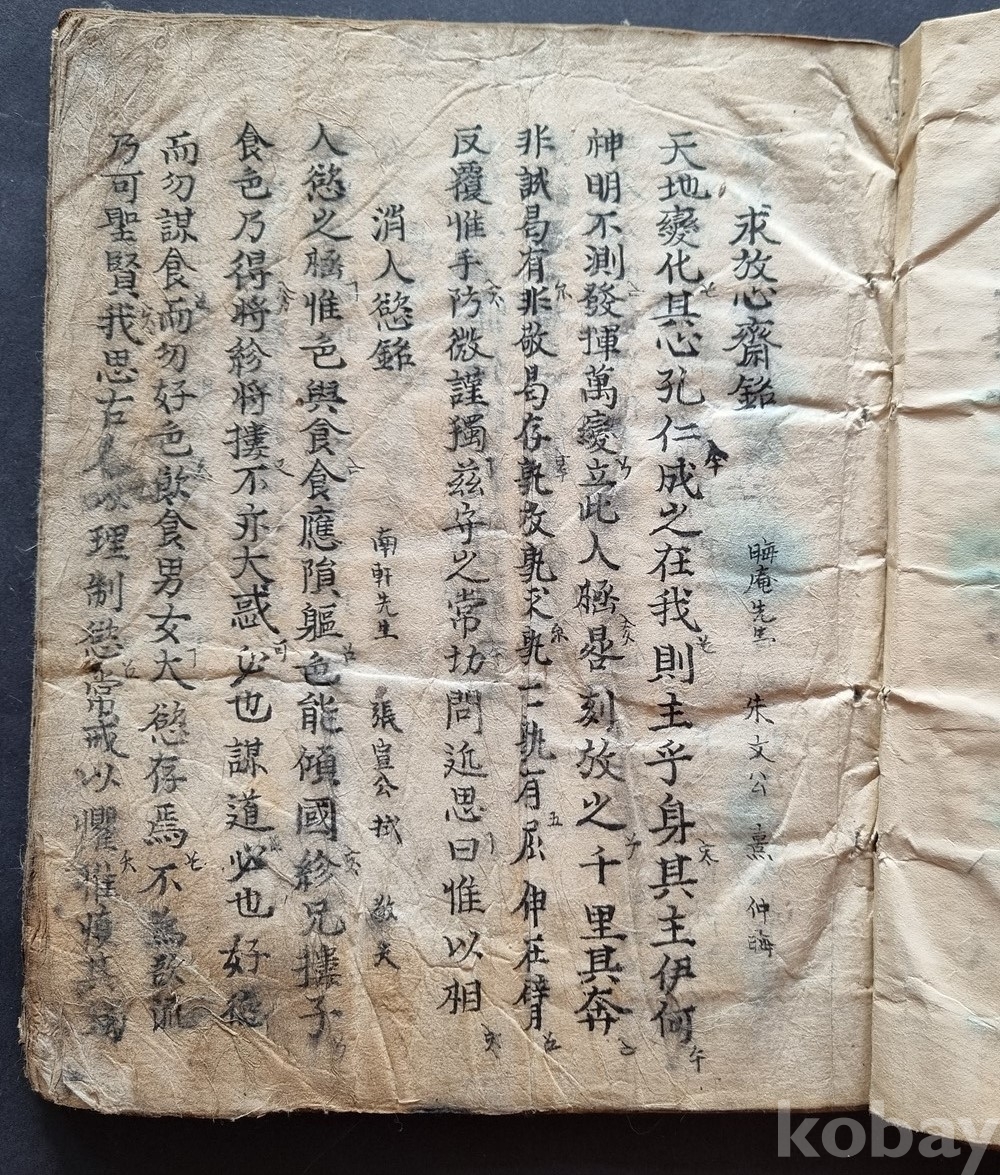 求放心齋銘
晦庵先生 朱文公 熹 仲晦
天地變化其心孔仁成之在我則主乎身其主伊何
神明不測發揮萬變立此人極晷刻放之千里其奔
非誠曷有非敬曷存孰放孰求孰亡孰有屈伸在臂
反覆惟手防微謹獨茲守之常切問近思曰惟以相
消人慾銘
南軒先生 張宣公 栻 敬夫
人慾之極惟色與食食應隕軀色能傾國紾兄摟子
食色乃得將紾將摟不亦大惑必也謀道必也好德
而勿謀食而勿好色飮食男女大慾存焉不爲
乃可聖賢我思古人以理制慾常戒以懼惟愼其
kobay